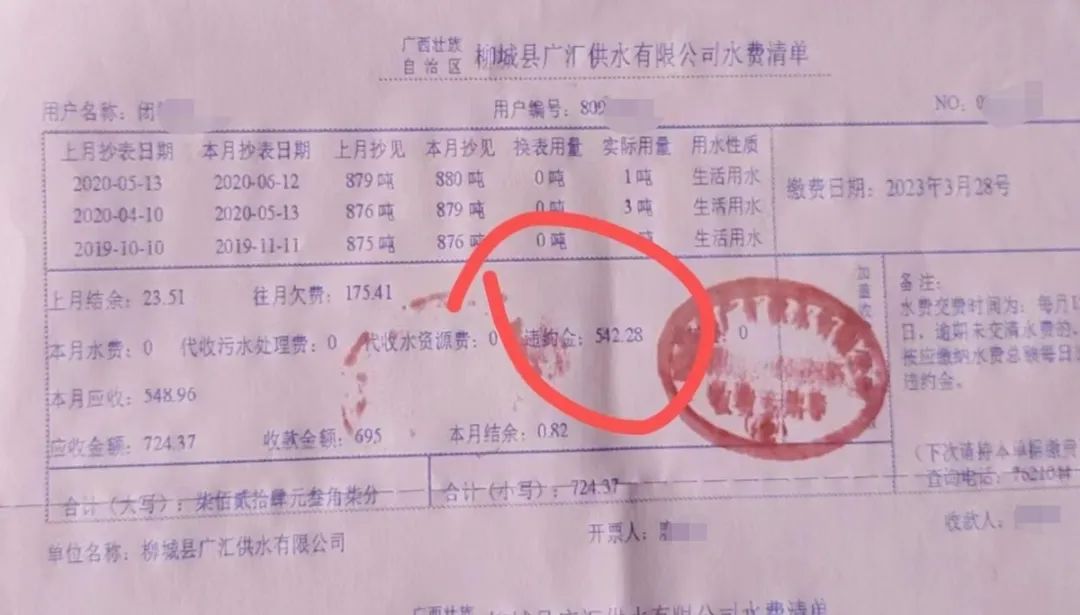 广西壮族
自治区 柳城县广汇供水有限公司水费清单
用户名称：闭 用户编号：809 NO：0
上月抄表日期 本月抄表日期 上月抄见 本月抄见 换表用量 实际用量 用水性质
2020-05-13 2020-06-12 879吨 880吨 0吨 1吨 生活用水
缴费日期：2023年3月28号
2020-04-10 2020-05-13 876吨 879吨 0吨 3吨 生活用水
2019-10-10 2019-11-11 875吨 876吨 0吨 吨 生活用水
上月结余：23.51 往月欠费：175.41
本月水费：0 代收污水处理费：0 代收水资源费：0 违约金：542.28 0
加重收
本月应收：548.96
应收金额：724.37 收款金额：695 本月结余：0.82
备注：
水费交费时间为：每月1
日，逾期未交清水费的，
按应缴纳水费总额每日
违约金。
（下次请持本单据缴费
查询电话：76210
合计（大写）：柒佰贰拾肆元叁角柒分 合计（小写）：724.37
单位名称：柳城县广汇供水有限公司 开票人： 收款人：
广西壮族 柳城县广汇供水有限公司水费清单